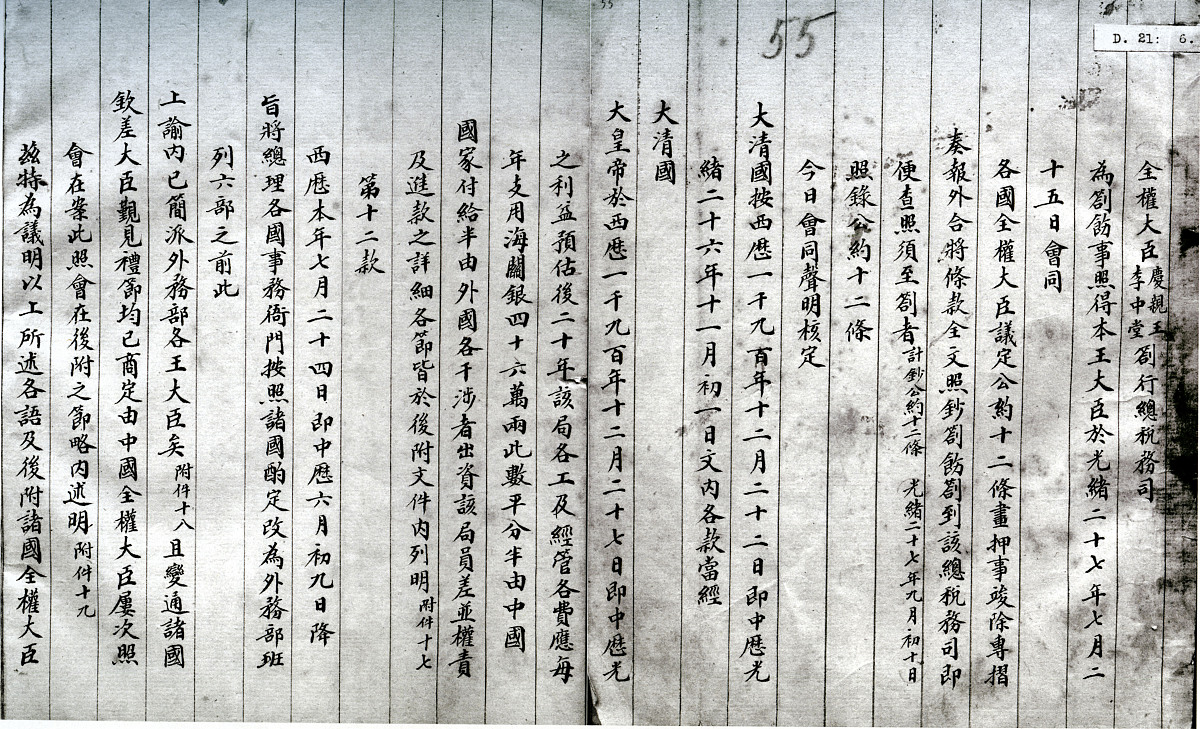 55
55
D. 21: 6.
全權大臣慶親王李中堂劄行總稅務司
為劄飭事照得本王大臣於光緒二十七年七月二
十五日會同
各國全權大臣議定公約十二條畫押事竣除專摺
奏報外合將條款全文照鈔劄飭劄到該總稅務司即
便查照須至劄者計鈔公約十二條 光緒二十七年九月初十日
照錄公約十二條
今日會同聲明核定
大清國按西歷一千九百年十二月二十二日即中歷光
緒二十六年十一月初一日文內各款當經
大清國
大皇帝於西歷一千九百年十二月二十七日即中歷光
之利益預估後二十年該局各工及經管各費應每
年支用海關銀四十六萬兩此數平分半由中國
國家付給半由外國各干涉者出資該局員差並權責
及進款之詳細各節皆於後附文件內列明附件十七
第十二款
西歷本年七月二十四日即中歷六月初九日降
旨將總理各國事務衙門按照諸國酌定改為外務部班
列六部之前此
上諭內已簡派外務部各王大臣矣附件十八且變通諸國
欽差大臣覲見禮節均已商定由中國全權大臣屢次照
會在案此照會在後附之節略內述明附件十九
茲特為議明以上所述各語及後附諸國全權大臣